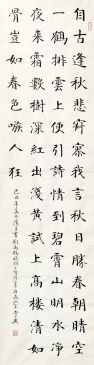 自古逢秋悲寂寥我言秋日勝春朝晴空
一鶴排雲上便引詩情到碧霄山明水淨
夜來霜數樹深紅出淺黃試上高樓清
骨豈如春色嗾人狂